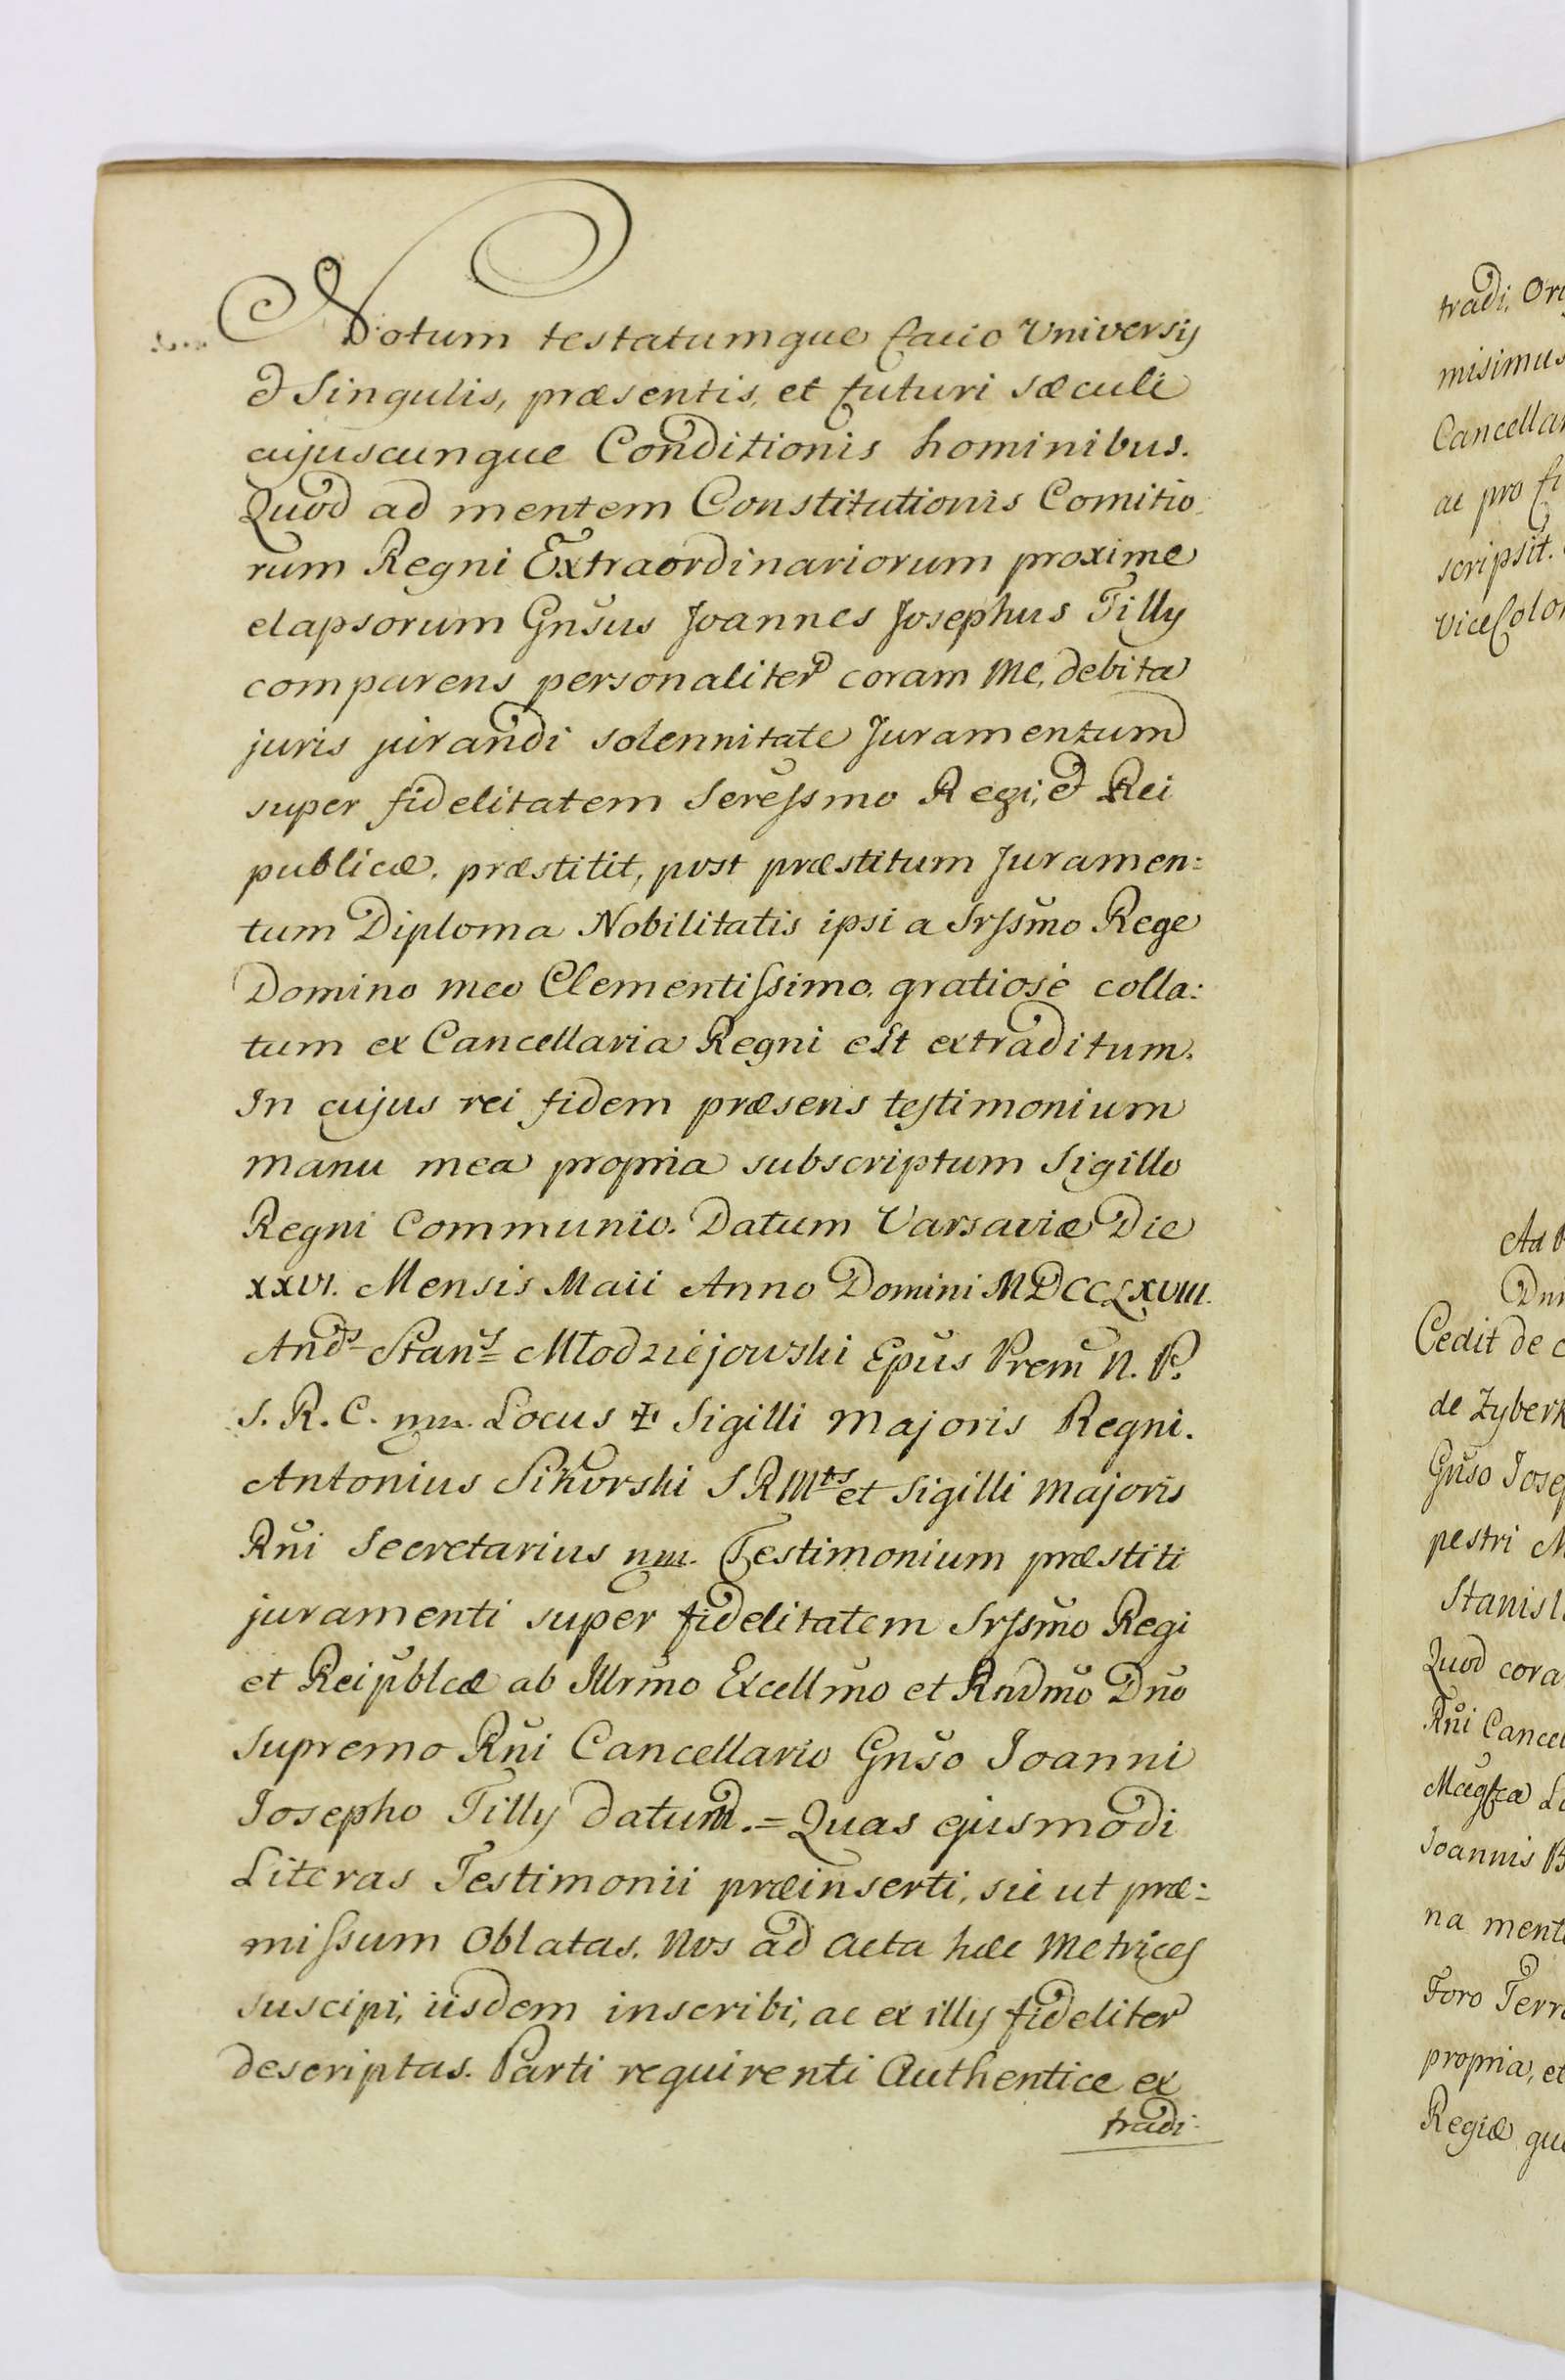 Notum testatumque facio Universis
et Singulis, præsentis, et futuri sæculi
cujuscunque Conditionis hominibus.
Quod ad mentem Constitutionis Comitio
rum Regni Extraordinariorum proxime
elapsorum Gnsus Joannes Josephus Tilly
comparens personaliter coram me, debita
juris jurandi solennitate Juramentum
super fidelitatem Seressmo Regi, et Rei
publicæ. præstitit, post præstitum Juramen:
tum Diploma Nobilitatis ipsi a Srssmo Rege
Domino meo Clementissimo. gratiose colla:
tum ex Cancellaria Regni est extraditum.
In cujus rei fidem præsens testimonium
manu mea propria subscriptum Sigillo
Regni Communio. Datum Varsaviæ Die
XXVI. Mensis Maii Anno Domini MDCCLXVIII.
Ands Stans Młodziejowski Epus Prem N. P.
S. R. C. mm. Locus ✠ Sigilli majoris Regni.
Antonius Sikorski S R Mtis et Sigilli majoris
Rni Secretarius mm. Testimonium præstiti
juramenti super fidelitatem Srssmo Regi
et Reipublcæ ab Illrmo Excellmo et Rndmo Dno
Supremo Rni Cancellario Gnso Joanni
Josepho Tilly datum. = Quas ejusmodi
Literas Testimonii præinserti, sic ut præ:
missum Oblatas. Nos ad Acta hæc Metrices
suscipi, iisdem inscribi, ac ex illis fideliter
descriptas. Parti requirenti Authentice ex
tradi.
tradi,
misimus
ac pro
scripsit.
Cedit de
de Zyberk
Gnso
pestri
Quod
Rni
Joannis
na
Foro
propria, et
Regiæ